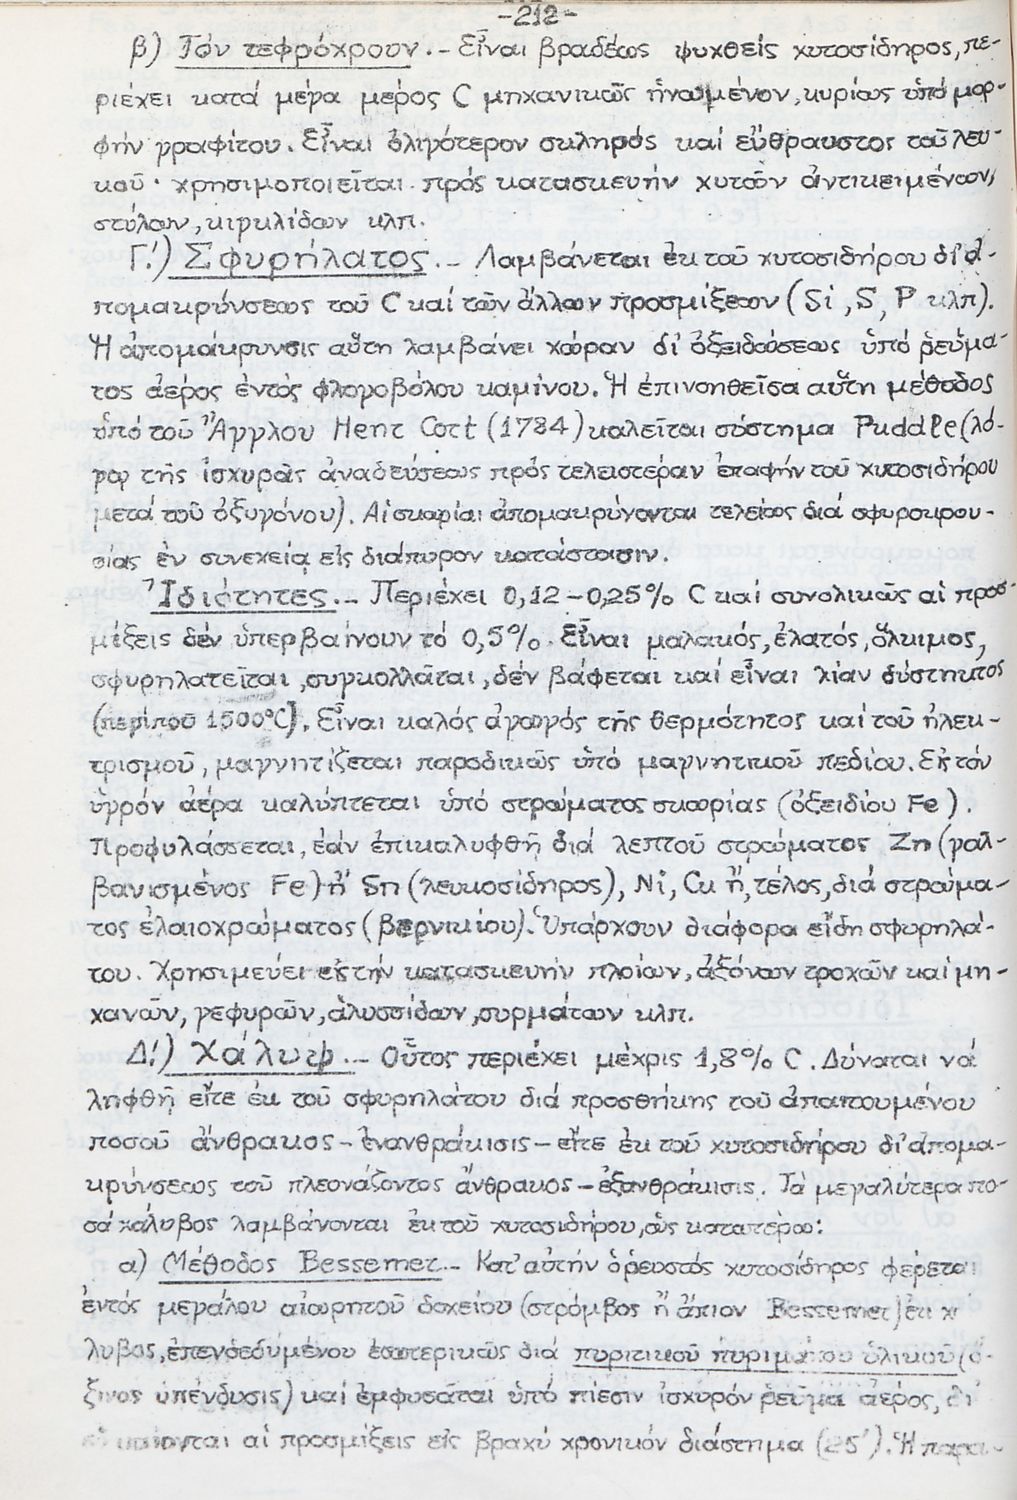 -212-
β) Τόν τεφρόχρουν.- Εἶναι βραδέως ψυχθείς χυτοσίδηρος, πε-
ριέχει κατά μέγα μέρος C μηχανικῶς ἡνωμένον, κυρίως ὑπό μορ-
φήν γραφίτου. Εἶναι ὀλιγότερον σκληρός καί εὔθραυστος τοῦ λευ-
κοῦ· χρησιμοποιεῖται πρός κατασκευήν χυτῶν ἀντικειμένων,
στύλων, κιγκλίδων κλπ.
Γ΄.) Σφυρήλατος.- Λαμβάνεται ἐκ τοῦ χυτοσιδήρου δι' ἀ-
πομακρύνσεως τοῦ C καί τῶν ἄλλων προσμίξεων (Si, S, P κλπ).
Ἡ ἀπομάκρυνσις αὕτη λαμβάνει χώραν δι' ὀξειδώσεως ὑπό ῥεύμα-
τος ἀέρος ἐντός φλογοβόλου καμίνου. Ἡ ἐπινοηθεῖσα αὕτη μέθοδος
ὑπό τοῦ Ἄγγλου Henr Cort (1784) καλεῖται σύστημα Puddle (λό-
γῳ τῆς ἰσχυρᾶς ἀναδεύσεως πρός τελειοτέραν ἐπαφήν τοῦ χυτοσιδήρου
μετά τοῦ ὀξυγόνου). Αἱ σκωρίαι ἀπομακρύνονται τελείως διά σφυροκρου-
σίας ἐν συνεχείᾳ εἰς διάπυρον κατάστασιν.
Ἰδιότητες.- Περιέχει 0,12-0,25% C καί συνολικῶς αἱ προσ-
μίξεις δέν ὑπερβαίνουν τό 0,5%. Εἶναι μαλακός, ἐλατός, ὅλκιμος,
σφυρηλατεῖται, συγκολλᾶται, δέν βάφεται καί εἶναι λίαν δύστηκτος
(περίπου 1500°C). Εἶναι καλός ἀγωγός τῆς θερμότητος καί τοῦ ἠλεκ-
τρισμοῦ, μαγνητίζεται παροδικῶς ὑπό μαγνητικοῦ πεδίου. Εἰς τόν
ὑγρόν ἀέρα καλύπτεται ὑπό στρώματος σκωρίας (ὀξειδίου Fe).
Προφυλάσσεται, ἐάν ἐπικαλυφθῇ διά λεπτοῦ στρώματος Zn (γαλ-
βανισμένος Fe) ἤ Sn (λευκοσίδηρος), Ni, Cu ἤ, τέλος, διά στρώμα-
τος ἐλαιοχρώματος (βερνικίου). Ὑπάρχουν διάφορα εἴδη σφυρηλά-
του. Χρησιμεύει εἰς τήν κατασκευήν πλοίων, ἀξόνων τροχῶν καί μη-
χανῶν, γεφυρῶν, ἁλυσσίδων, συρμάτων κλπ.
Δ΄.) Χάλυψ.- Οὗτος περιέχει μέχρις 1,8% C. Δύναται νά
ληφθῇ εἴτε ἐκ τοῦ σφυρηλάτου διά προσθήκης τοῦ ἀπαιτουμένου
ποσοῦ ἄνθρακος - ἐνανθράκισις - εἴτε ἐκ τοῦ χυτοσιδήρου δι' ἀπομα-
κρύνσεως τοῦ πλεονάζοντος ἄνθρακος - ἐξανθράκισις. Τά μεγαλύτερα πο-
σά χάλυβος λαμβάνονται ἐκ τοῦ χυτοσιδήρου, ὡς κατωτέρω:
α) Μέθοδος Bessemer.- Κατ' αὐτήν ὁ ῥευστός χυτοσίδηρος φέρεται
ἐντός μεγάλου αἰωρητοῦ δοχείου (στρόμβος ἤ ἄπιον Bessemer) ἐκ χ
λυβος, ἐπενδεδυμένου ἐσωτερικῶς διά πυριτικοῦ πυριμάχου ὑλικοῦ (ὄ-
ξινος ὑπένδυσις) καί ἐμφυσᾶται ὑπό πίεσιν ἰσχυρόν ῥεῦμα ἀέρος, δι'
αἱ προσμίξεις εἰς βραχύ χρονικόν διάστημα (25'). Ἡ παρα-